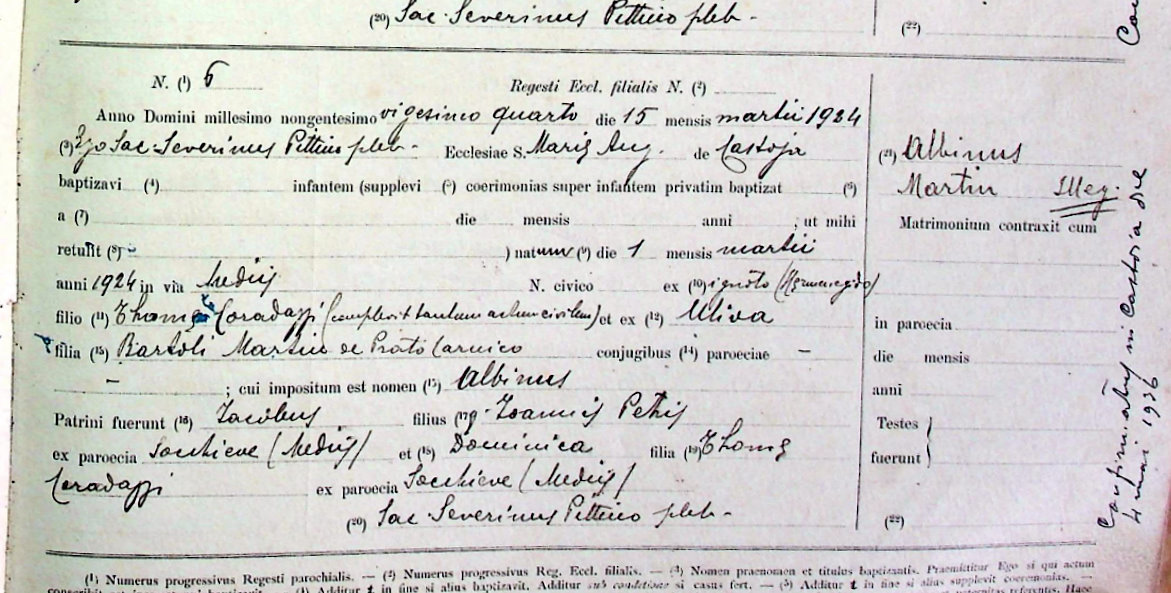 (20) Sac. Severinus Pittino pleb. (22)
N. (1) 6 Regesti Eccl. filialis N. (2)
Anno Domini millesimo nongentesimo vigesimo quarto die 15 mensis martii 1924
(3) Ego Sac. Severinus Pittino pleb. Ecclesiae S. Mariæ Ang. de Castoja
baptizavi (4) infantem (supplevi (5) coerimonias super infantem privatim baptizat (6)
a (7) die mensis anni ; ut mihi
retulit (8) ) natum (9) die 1 mensis martii
anni 1924 in via Mediis N. civico ex (10) ignoto (Hermenegildo)
filio (11) Thomæ Coradazzi (complevit tantum actum civilem) et ex (12) Uliva
filia (13) Bartoli Martin de Prato Carnico conjugibus (14) paroeciae –
– ; cui impositum est nomen (15) Albinus
Patrini fuerunt (16) Jacobus filius (17) q. Joannis Petris
ex paroecia Socchieve (Mediis) et (18) Dominica filia (19) Thomæ
Coradazzi ex paroecia Socchieve (Mediis)
(20) Sac. Severinus Pittino pleb.
(21) Albinus
Martin Illeg.
Matrimonium contraxit cum
in paroecia
die mensis
anni
Testes
fuerunt
(22)
Confirmatus in Castoria die
4 maii 1936
(1) Numerus progressivus Regesti parochialis. — (2) Numerus progressivus Reg. Eccl. filialis. — (3) Nomen praenomen et titulus baptizantis. Praemittitur Ego si qui actum
Additur t in fine si alius baptizavit. Additur sub conditione si casus fert. — (5) Additur t in fine si alius supplevit coeremonias. —